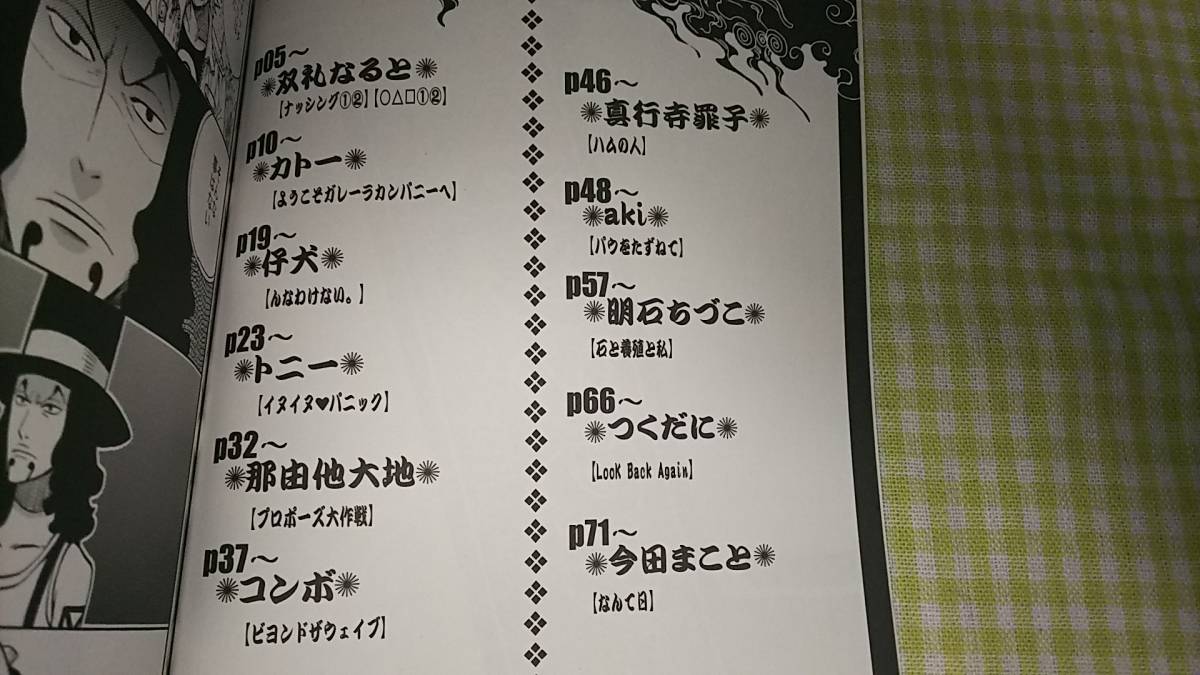 p05～
双礼なると
【ナッシング①②】【○△□①②】
p10～
カトー
【ようこそガレーラカンパニーへ】
p19～
仔犬
【んなわけない。】
p23～
トニー
【イヌイヌ♥パニック】
p32～
那由他大地
【プロポーズ大作戦】
p37～
コンボ
【ビヨンドザウェイブ】
p46～
真行寺罪子
【ハムの人】
p48～
aki
【パウをたずねて】
p57～
明石ちづこ
【石と養殖と私】
p66～
つくだに
【Look Back Again】
p71～
今田まこと
【なんて日】